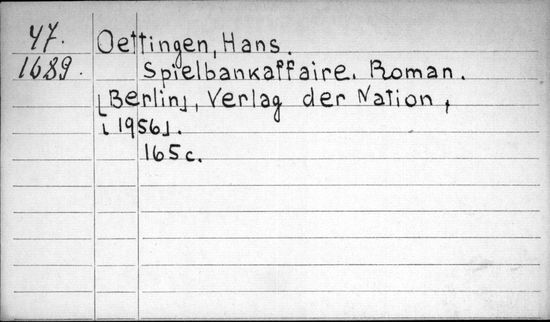 47. Oettingen, Hans.
1689. Spielbankaffaire. Roman.
[Berlin], Verlag der Nation,
[1956].
165 с.